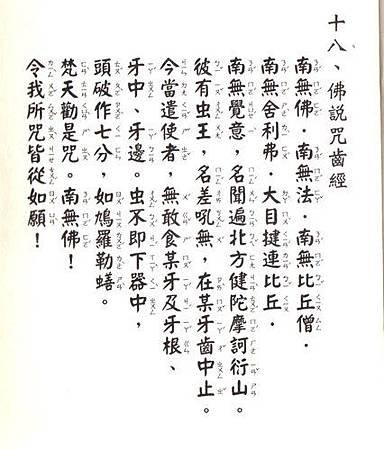 十八、佛說咒齒經
南無佛．南無法．南無比丘僧．
南無舍利弗．大目揵連比丘．
南無覺意，名聞遍北方健陀摩訶衍山。
彼有虫王，名差吼無，在某牙齒中止。
今當遣使者，無敢食某牙及牙根、
牙中、牙邊。虫不即下器中，
頭破作七分，如鳩羅勒繕。
梵天勸是咒。南無佛！
令我所咒皆從如願！